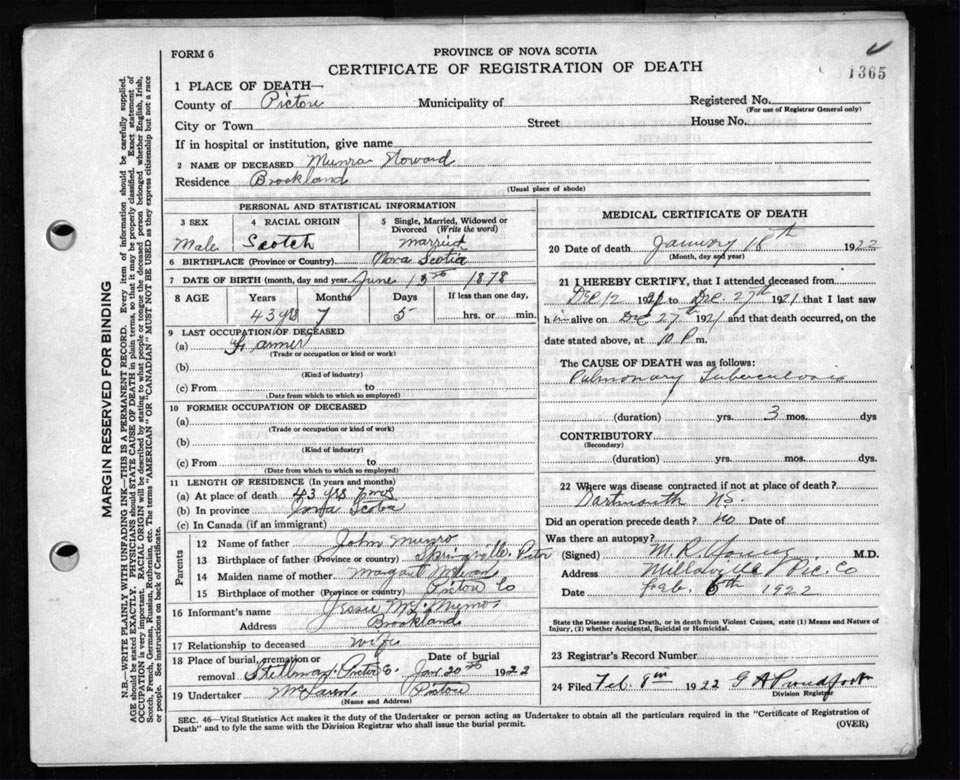 FORM 6
PROVINCE OF NOVA SCOTIA
CERTIFICATE OF REGISTRATION OF DEATH
1365
1 PLACE OF DEATH—
County of Pictou Municipality of Registered No.
(For use of Registrar General only)
City or Town Street House No.
If in hospital or institution, give name
2 NAME OF DECEASED Munro Howard
Residence Brookland
(Usual place of abode)
PERSONAL AND STATISTICAL INFORMATION
3 SEX 4 RACIAL ORIGIN 5 Single, Married, Widowed or Divorced (Write the word)
Male Scotch married
6 BIRTHPLACE (Province or Country) Nova Scotia
7 DATE OF BIRTH (month, day and year) June 13th 1878
8 AGE Years Months Days If less than one day,
43 yrs 7 5 hrs. or min.
9 LAST OCCUPATION OF DECEASED
(a) Farmer
(Trade or occupation or kind or work)
(b)
(Kind of industry)
(c) From to
(Date from which to which so employed)
10 FORMER OCCUPATION OF DECEASED
(a)
(Trade or occupation or kind of work)
(b)
(Kind of industry)
(c) From to
(Date from which to which so employed)
11 LENGTH OF RESIDENCE (In years and months)
(a) At place of death 43 yrs 7 mos
(b) In province Nova Scotia
(c) In Canada (if an immigrant)
Parents
12 Name of father John Munro
13 Birthplace of father (Province or country) Springville Pictou
14 Maiden name of mother Margaret
15 Birthplace of mother (Province or country) Pictou Co
16 Informant's name Jessie Munro
Address Brookland
17 Relationship to deceased wife
18 Place of burial, cremation or removal Date of burial
Stellman Pictou Co. Jan 20th 1922
19 Undertaker McLaren Pictou
(Name and Address)
MEDICAL CERTIFICATE OF DEATH
20 Date of death January 18th 1922
(Month, day and year)
21 I HEREBY CERTIFY, that I attended deceased from
Dec 12 1921 to Dec 27th 1921 that I last saw
h im alive on Dec 27th 1921 and that death occurred, on the
date stated above, at 10 P m.
The CAUSE OF DEATH was as follows:
Pulmonary Tuberculosis
(duration) yrs. 3 mos. dys
CONTRIBUTORY
(Secondary)
(duration) yrs. mos. dys.
22 Where was disease contracted if not at place of death?
Dartmouth N.S.
Did an operation precede death? No Date of
Was there an autopsy?
(Signed) M. R. Young M.D.
Address Millsville Pic. Co
Date Feb. 6th 1922
State the Disease causing Death, or in death from Violent Causes, state (1) Means and Nature of
Injury, (2) whether Accidental, Suicidal or Homicidal.
23 Registrar's Record Number
24 Filed Feb. 8th 1922 G A Proudfoot
Division Registrar
SEC. 46—Vital Statistics Act makes it the duty of the Undertaker or person acting as Undertaker to obtain all the particulars required in the "Certificate of Registration of
Death" and to fyle the same with the Division Registrar who shall issue the burial permit.
(OVER)
MARGIN RESERVED FOR BINDING
N.B.—WRITE PLAINLY WITH UNFADING INK—THIS IS A PERMANENT RECORD. Every item of information should be carefully supplied.
AGE should be stated EXACTLY. PHYSICIANS should STATE CAUSE OF DEATH in plain terms, so that it may be properly classified. Exact statement of
OCCUPATION is very important. RACIAL ORIGIN will be described by stating to what people or tongue the deceased person belonged whether English, Irish,
Scotch, French, German, Russian, Ruthenian, etc. The terms "AMERICAN" OR "CANADIAN" MUST NOT BE USED as they express citizenship but not a race
or people. See instructions on back of Certificate.